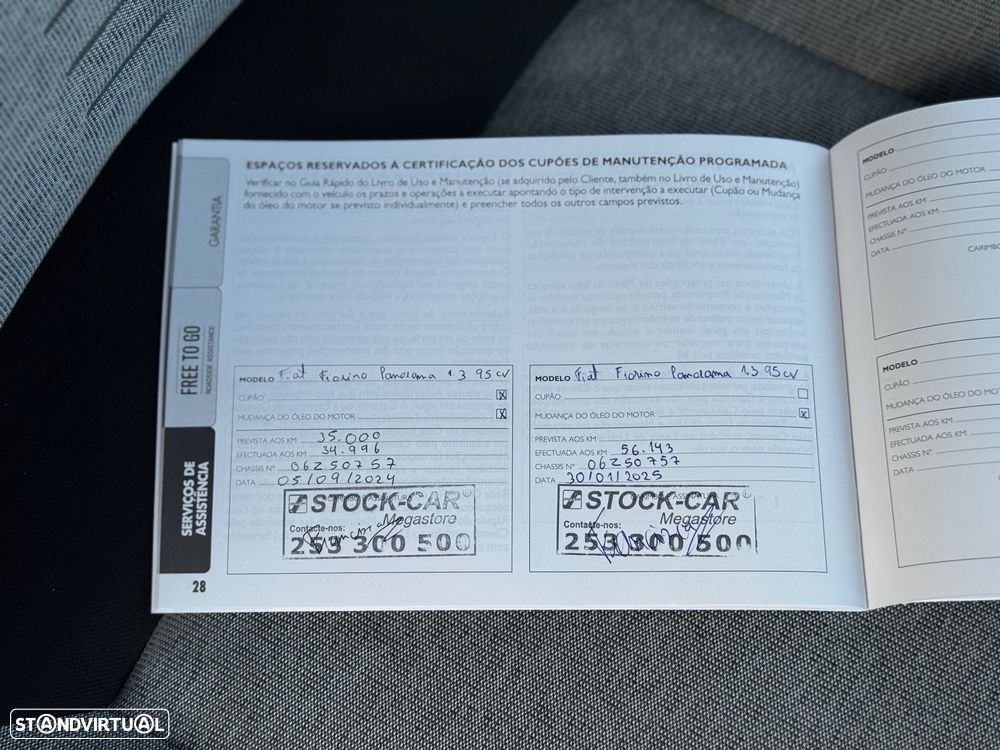 ESPAÇOS RESERVADOS À CERTIFICAÇÃO DOS CUPÕES DE MANUTENÇÃO PROGRAMADA
Verificar no Guia Rápido do Livro de Uso e Manutenção (se adquirido pelo Cliente, também no Livro de Uso e Manutenção)
fornecido com o veículo os prazos e operações a executar apontando o tipo de intervenção a executar (Cupão ou Mudança
do óleo do motor se previsto individualmente) e preencher todos os outros campos previstos.
GARANTIA
FREE TO GO
ROADSIDE ASSISTANCE
SERVIÇOS DE
ASSISTÊNCIA
28
MODELO Fiat Fiorino Panorama 1.3 95cv
CUPÃO X
MUDANÇA DO ÓLEO DO MOTOR X
PREVISTA AOS KM 35.000
EFECTUADA AOS KM 34.996
CHASSIS N° 06250757
DATA 05/09/2024
STOCK-CAR
Megastore
Contacte-nos:
253 300 500
MODELO Fiat Fiorino Panorama 1.3 95cv
CUPÃO
MUDANÇA DO ÓLEO DO MOTOR X
PREVISTA AOS KM
EFECTUADA AOS KM 56.143
CHASSIS N° 06250757
DATA 30/01/2025
STOCK-CAR
Megastore
Contacte-nos:
253 300 500
MODELO
CUPÃO
MUDANÇA DO ÓLEO DO MOTOR
PREVISTA AOS KM
EFECTUADA AOS KM
CHASSIS N°
DATA
CARIMBO
MODELO
CUPÃO
MUDANÇA DO ÓLEO DO MOT
PREVISTA AOS KM
EFECTUADA AOS KM
CHASSIS N°
DATA
STANDVIRTUAL